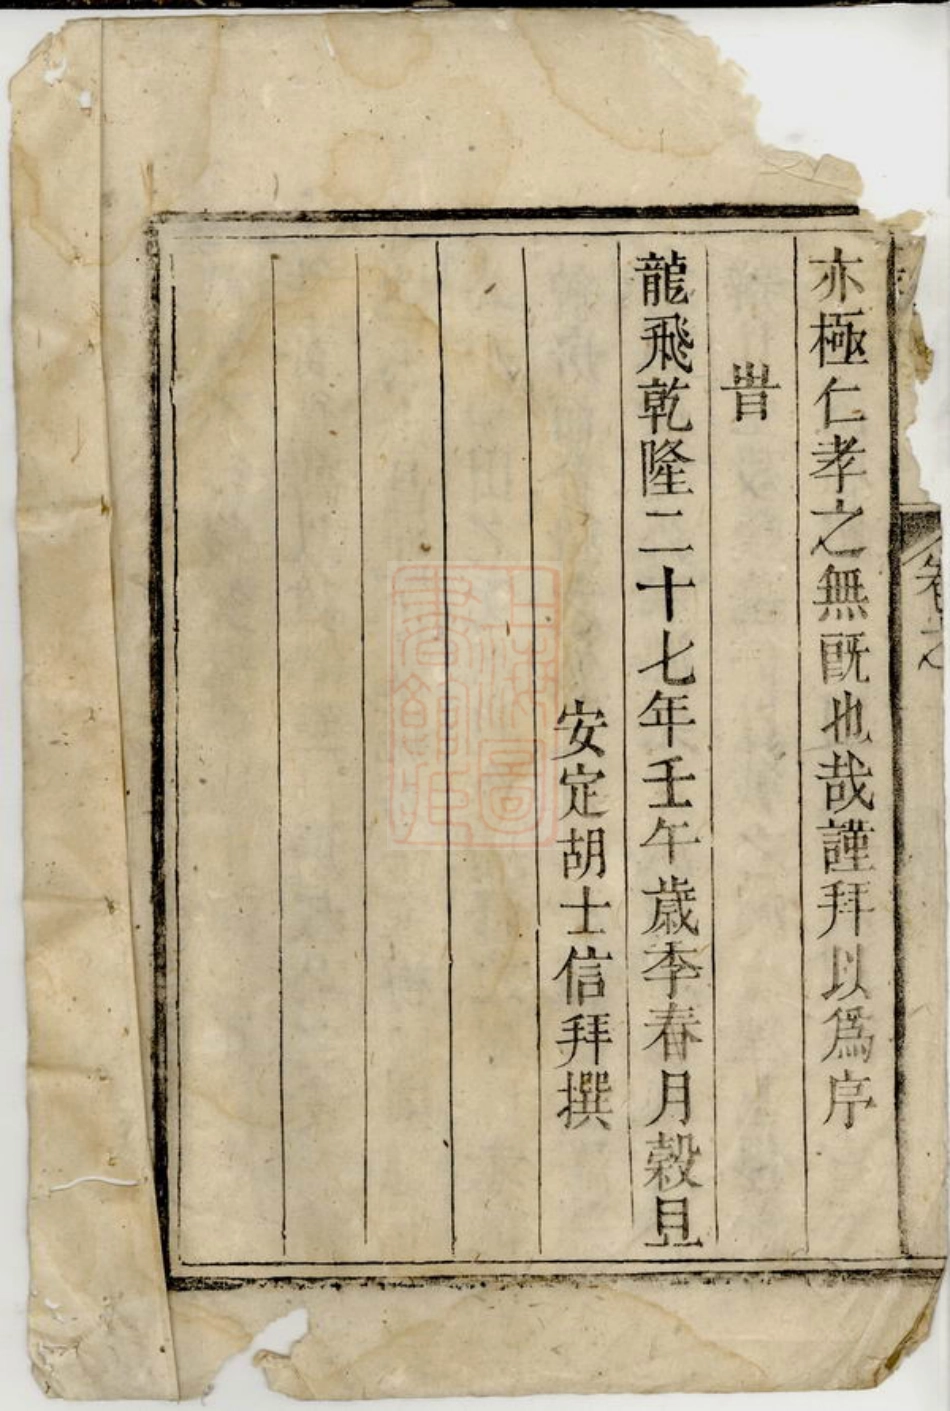 亦極仁孝之無既也哉謹拜以爲序
旹
龍飛乾隆二十七年壬午歲季春月穀旦
安定胡士信拜撰
卷之
上海圖書館藏